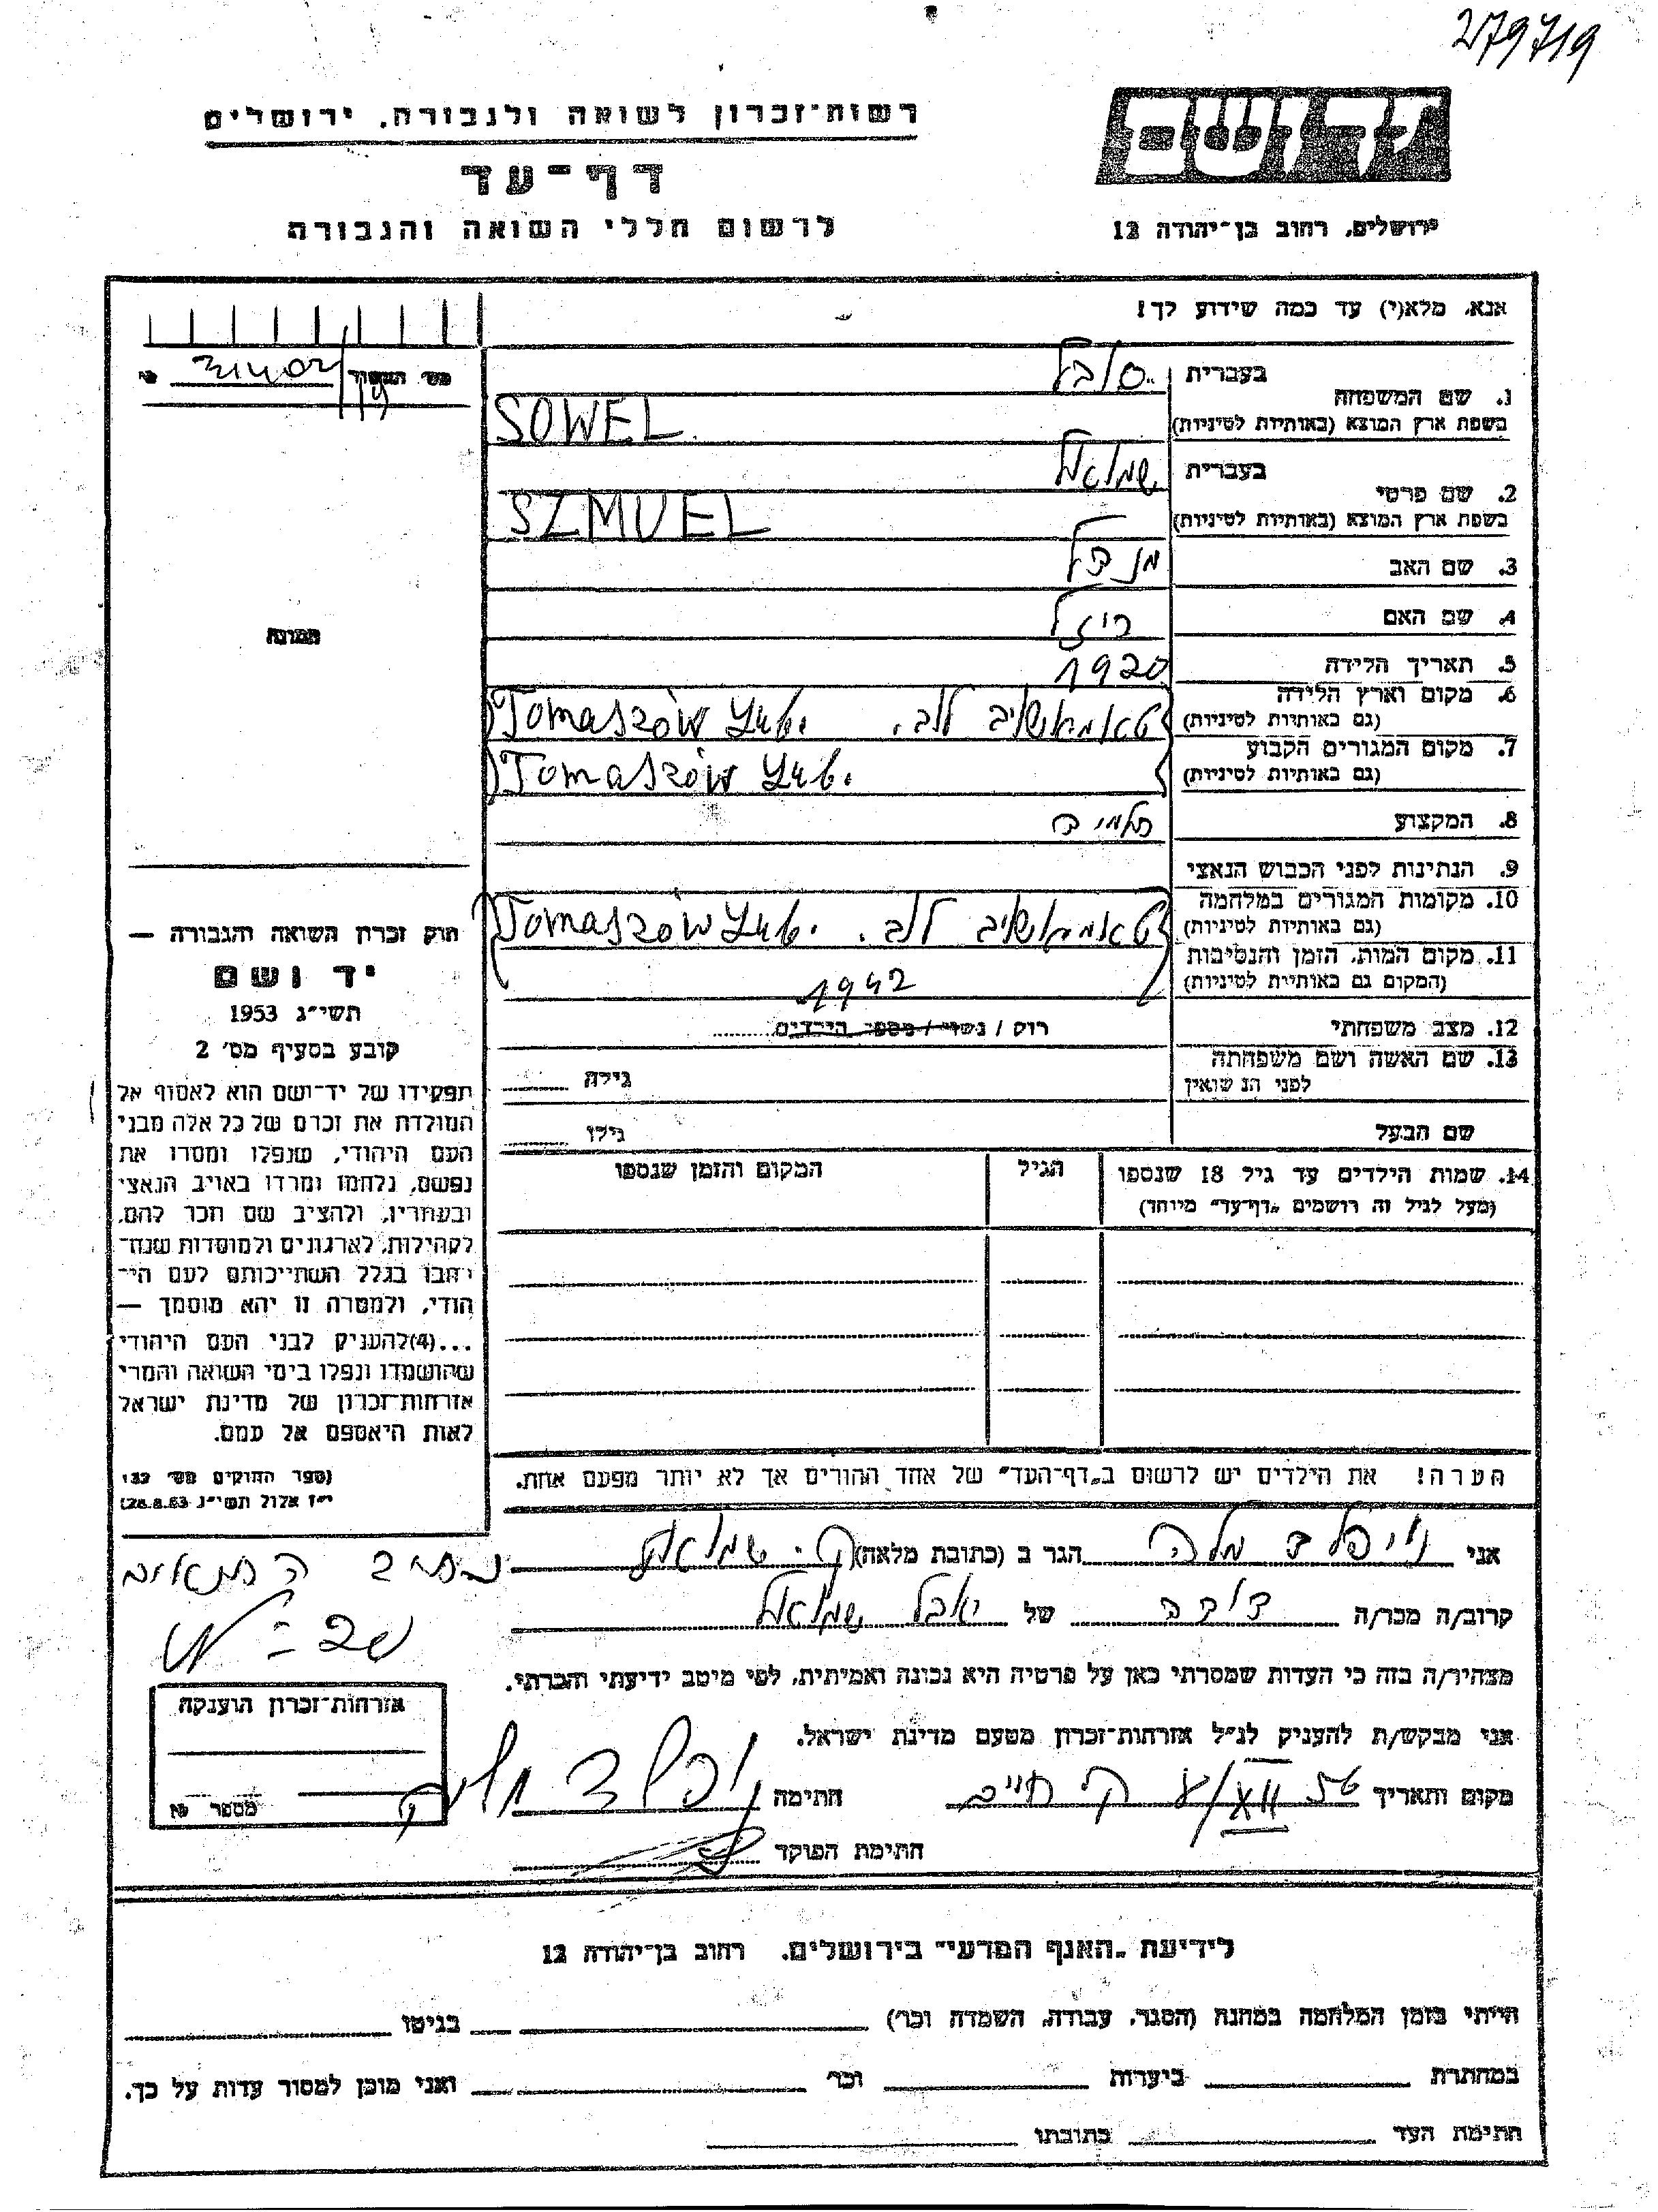 279719
יד ושם
רשות־זכרון לשואה ולגבורה, ירושלים
דף־עד
לרשום חללי השואה והגבורה
ירושלים, רחוב בן־יהודה 12
אנא, מלא(י) עד כמה שידוע לך!
1. שם המשפחה
בעברית
סובל
בשפת ארץ המוצא (באותיות לטיניות)
SOWEL
2. שם פרטי
בעברית
שמואל
בשפת ארץ המוצא (באותיות לטיניות)
SZMUEL
3. שם האב
מנדל
4. שם האם
רייזל
5. תאריך הלידה
1920
6. מקום וארץ הלידה
(גם באותיות לטיניות)
Tomaszów Lub.
7. מקום המגורים הקבוע
(גם באותיות לטיניות)
Tomaszów Lub.
8. המקצוע
תלמיד
9. הנתינות לפני הכבוש הנאצי
10. מקומות המגורים במלחמה
(גם באותיות לטיניות)
Tomaszów Lub.
11. מקום המות, הזמן והנסיבות
(המקום גם באותיות לטיניות)
1942
12. מצב משפחתי
רוק / נשוי / מספר הילדים
13. שם האשה ושם משפחתה
לפני הנשואין
גילה
שם הבעל
גילו
14. שמות הילדים עד גיל 18 שנספו
(מעל לגיל זה רושמים „דף־עד" מיוחד)
הגיל
המקום והזמן שנספו
הערה! את הילדים יש לרשום ב„דף־העד" של אחד ההורים אך לא יותר מפעם אחת.
מס׳ №
תמונה
חוק זכרון השואה והגבורה —
יד ושם
תשי״ג 1953
קובע בסעיף מס׳ 2
תפקידו של יד־ושם הוא לאסוף אל
המולדת את זכרם של כל אלה מבני
העם היהודי, שנפלו ומסרו את
נפשם, נלחמו ומרדו באויב הנאצי
ובעוזריו, ולהציב שם וזכר להם,
לקהילות, לארגונים ולמוסדות שנח־
רבו בגלל השתייכותם לעם הי־
הודי, ולמטרה זו יהא מוסמך —
...(4)להעניק לבני העם היהודי
שהושמדו ונפלו בימי השואה והמרי
אזרחות־זכרון של מדינת ישראל
לאות היאספם אל עמם.
(ספר החוקים מס׳ 132
י״ז אלול תשי״ג 28.8.53)
אני הגר ב (כתובת מלאה) ק. שמואל
קרוב/ה מכר/ה דודה של שמואל
מצהיר/ה בזה כי העדות שמסרתי כאן על פרטיה היא נכונה ואמיתית, לפי מיטב ידיעתי והכרתי.
אני מבקש/ת להעניק לנ״ל אזרחות־זכרון מטעם מדינת ישראל.
מקום ותאריך ק. חיים XII חתימה
חתימת הפוקד
אזרחות־זכרון הוענקה
מספר №
לידיעת „האגף המדעי" בירושלים, רחוב בן־יהודה 12
הייתי בזמן המלחמה במחנה (הסגר, עבודה, השמדה וכו׳) בגיטו
במחתרת ביערות וכו׳ ואני מוכן למסור עדות על כך.
חתימת העד כתובתו